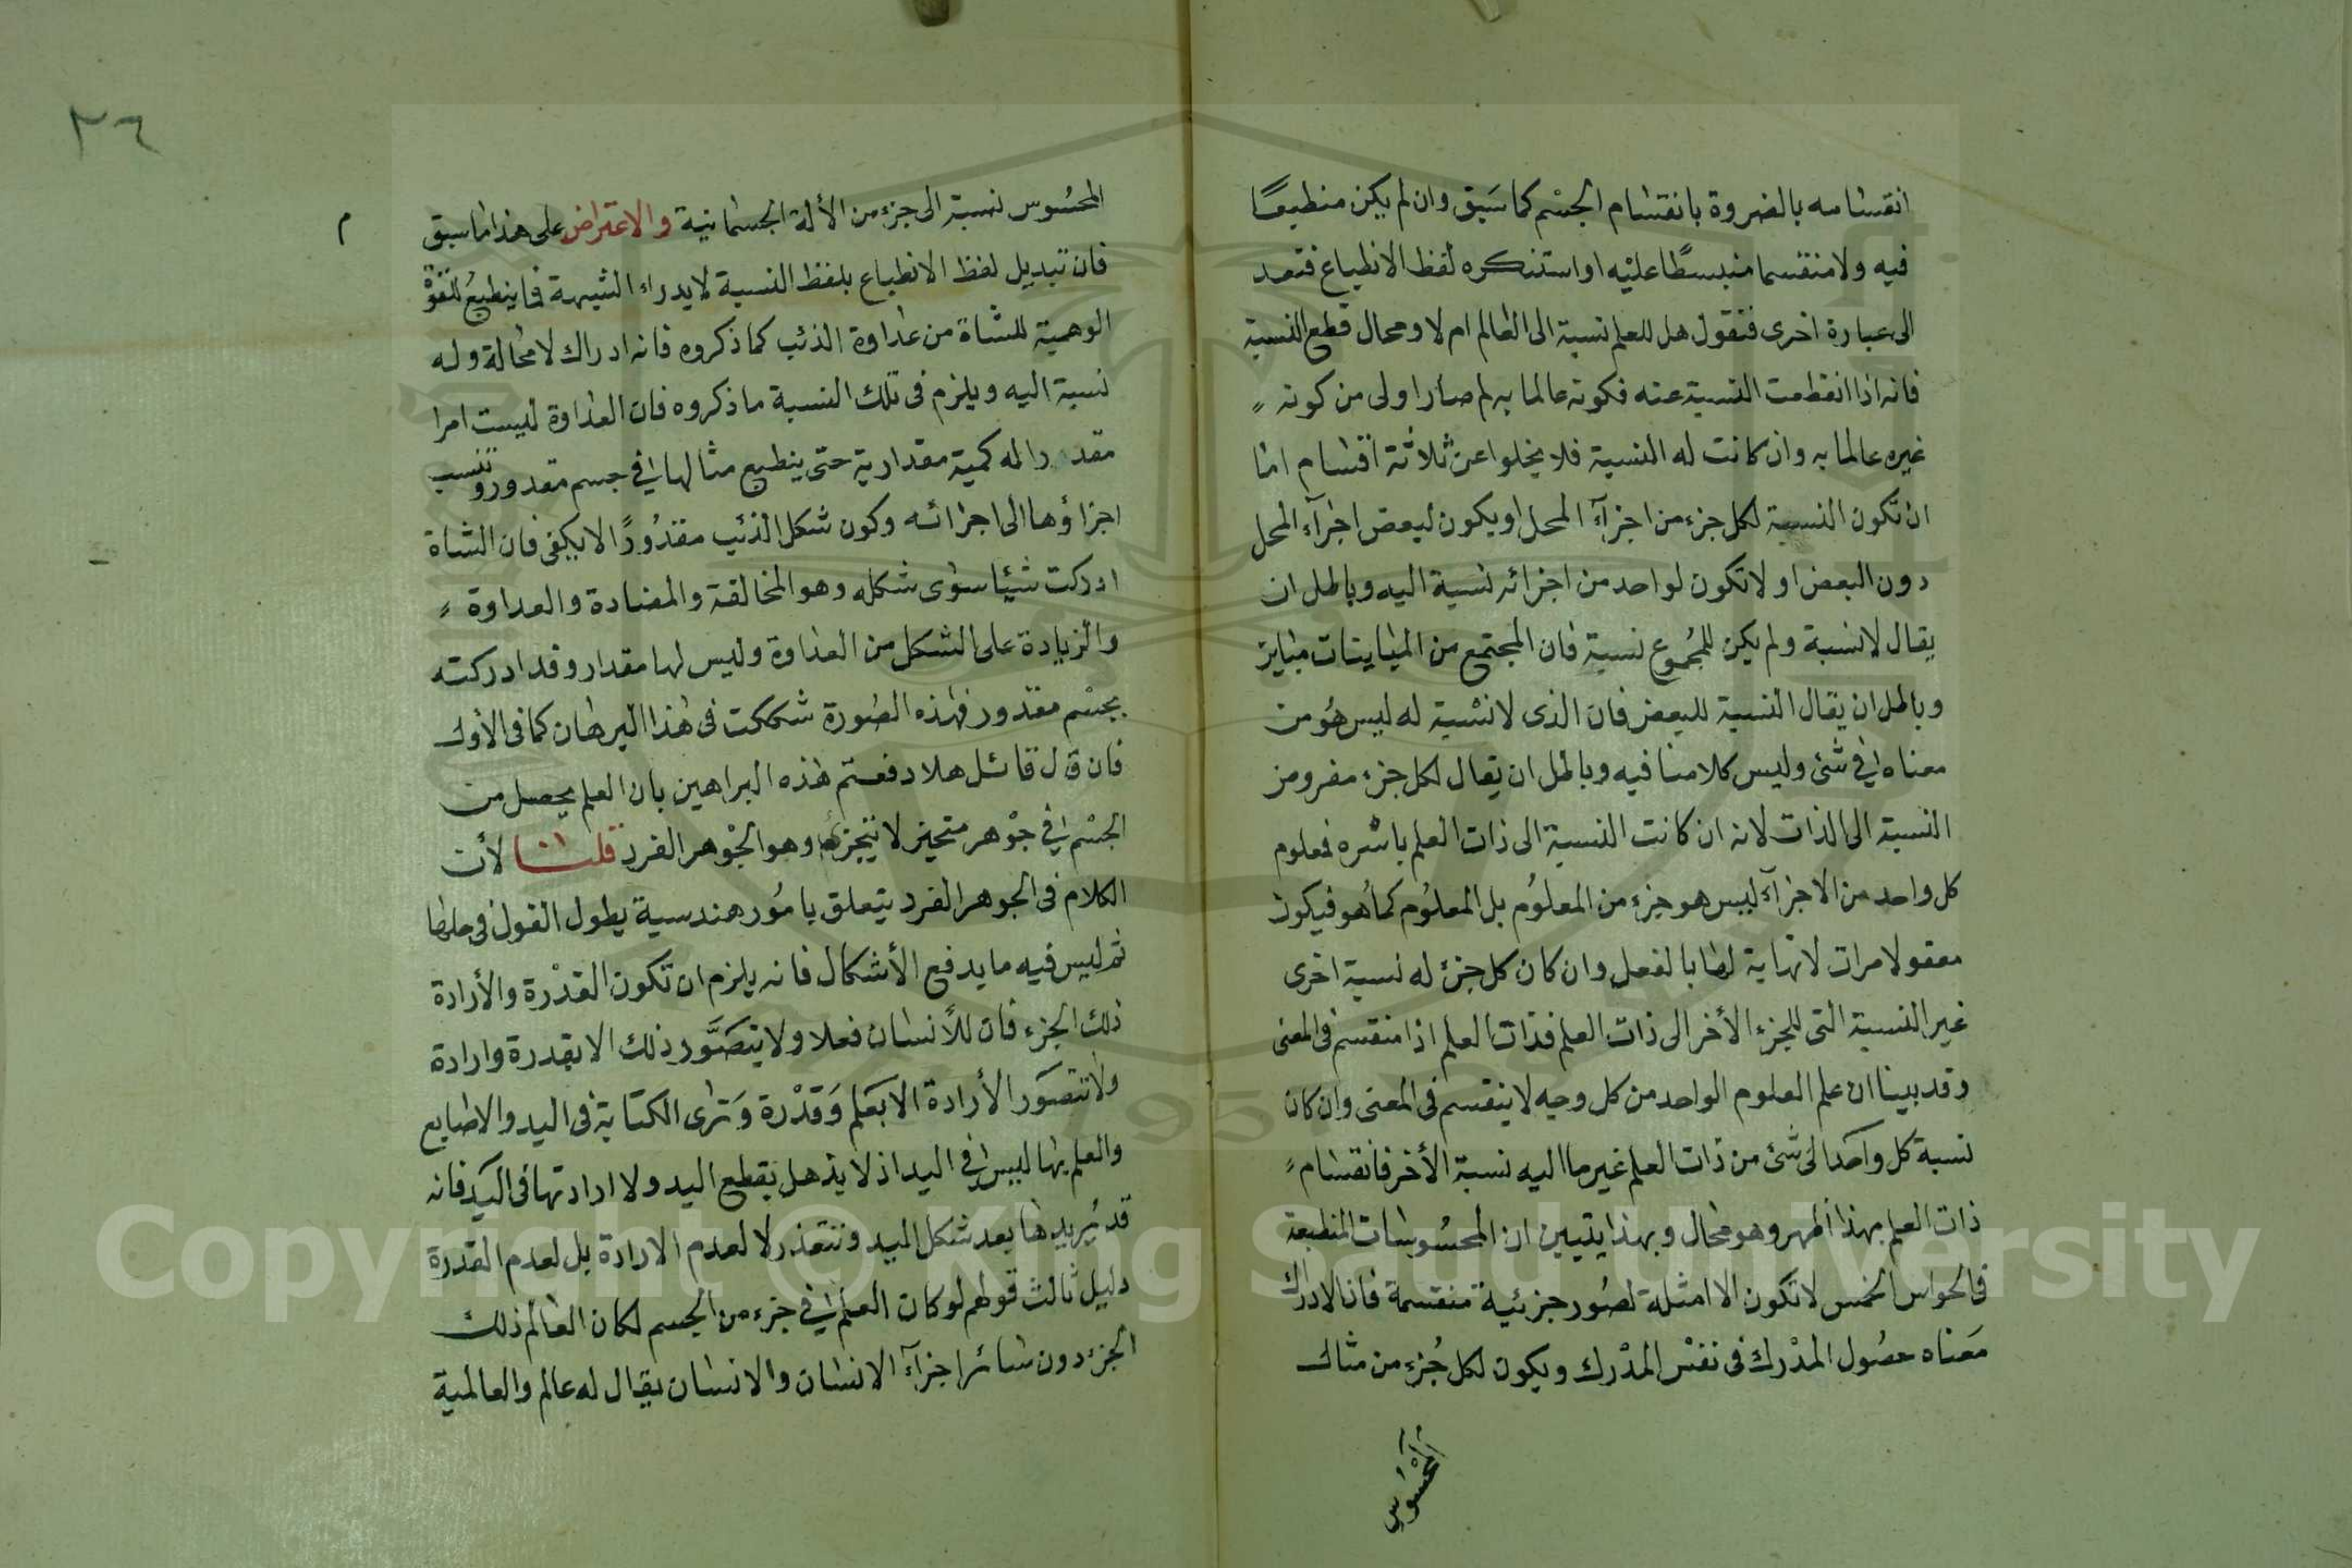 انقسامه بالضروة بانقسام الجسم كما سبق وان لم يكن منطبعًا
فيه ولا منقسما منبسطًا عليه او استنكره لفظ الانطباع فتعد
الى عبارة اخرى فنقول هل للعلم نسبة الى العالم ام لا ومحال قطع النسبة
فانه اذا انقطعت النسبة عنه فكونه عالما به لم صار اولى من كونه
غيره عالما به وان كانت له النسبة فلا يخلوا عن ثلاثة اقسام اما
ان تكون النسبة لكل جزء من اجزآء المحل او يكون لبعض اجزآء المحل
دون البعض او لا تكون لواحد من اجزائه نسبة اليه وباطل ان
يقال لا نسبة ولم يكن للمجموع نسبة فان المجتمع من المباينات مباين
وباطل ان يقال النسبة للبعض فان الذى لا نسبة له ليس هو من
معناه في شئ وليس كلامنا فيه وباطل ان يقال لكل جزء مفرو من
النسبة الى الذات لانه ان كانت النسبة الى ذات العلم باسره فمعلوم
كل واحد من الاجزآء ليس هو جزء من المعلوم بل المعلوم كما هو فيكون
معقولا مرات لا نهاية لها بالفعل وان كان كل جزء له نسبة اخرى
غير النسبة التى للجزء الأخر الى ذات العلم فذات العلم اذا منقسم فى المعنى
وقد بينا ان علم العلوم الواحد من كل وجه لا ينقسم فى المعنى وان كان
نسبة كل واحد الى شئ من ذات العلم غير ما اليه نسبة الأخر فانقسام
ذات العلم بهذا اظهر وهو محال وبهذا يتبين ان المحسوسات المنطبعة
فى الحواس الخمس لا تكون الا امثلة لصور جزئية منقسمة فان الادراك
معناه حصول المدرك فى نفس المدرك ويكون لكل جزء من مثال
المحسوس
٣٦
المحسوس نسبة الى جزء من الألة الجسمانية والاعتراض على هذا ما سبق
م
فان تبديل لفظ الانطباع بلفظ النسبة لا يدراء الشبهة فيما ينطبع للقوة
الوهمية للشاة من عداوة الذئب كما ذكروه فانه ادراك لا محالة وله
نسبة اليه ويلزم فى تلك النسبة ما ذكروه فان العداوة ليست امرا
مقدرا له كمية مقدارية حتى ينطبع مثالها في جسم مقدور وتنسب
اجزاؤها الى اجزائه وكون شكل الذئب مقدورًا لا يكفى فان الشاة
ادركت شيئا سوى شكله وهو المخالفة والمضادة والعداوة
والزيادة على الشكل من العداوة وليس لها مقدار وقد ادركته
بجسم مقدور فهذه الصورة شككت فى هذا البرهان كما فى الأول
فان قال قائل هلا دفعتم هذه البراهين بان العلم يحصل من
الجسم في جوهر متحيز لا يتجزء وهو الجوهر الفرد قلنا لأن
الكلام فى الجوهر الفرد يتعلق بامور هندسية يطول القول في حلها
ثم ليس فيه ما يدفع الأشكال فانه يلزم ان تكون القدرة والأرادة
ذلك الجزء فان للأنسان فعلا ولا يتصور ذلك الا بقدرة وارادة
ولا تتصور الأرادة الا بعلم وقدرة وترى الكتابة فى اليد والاصابع
والعلم بها ليس في اليد اذ لا يذهل بقطع اليد ولا ارادتها فى اليد فانه
قد يريدها بعد شكل اليد وتتعذر لا لعدم الارادة بل لعدم القدرة
دليل ثالث قولهم لو كان العلم في جزء من الجسم لكان العالم ذلك
الجزء دون سائر اجزآء الانسان والانسان يقال له عالم والعالمية
Copyright © King Saud University